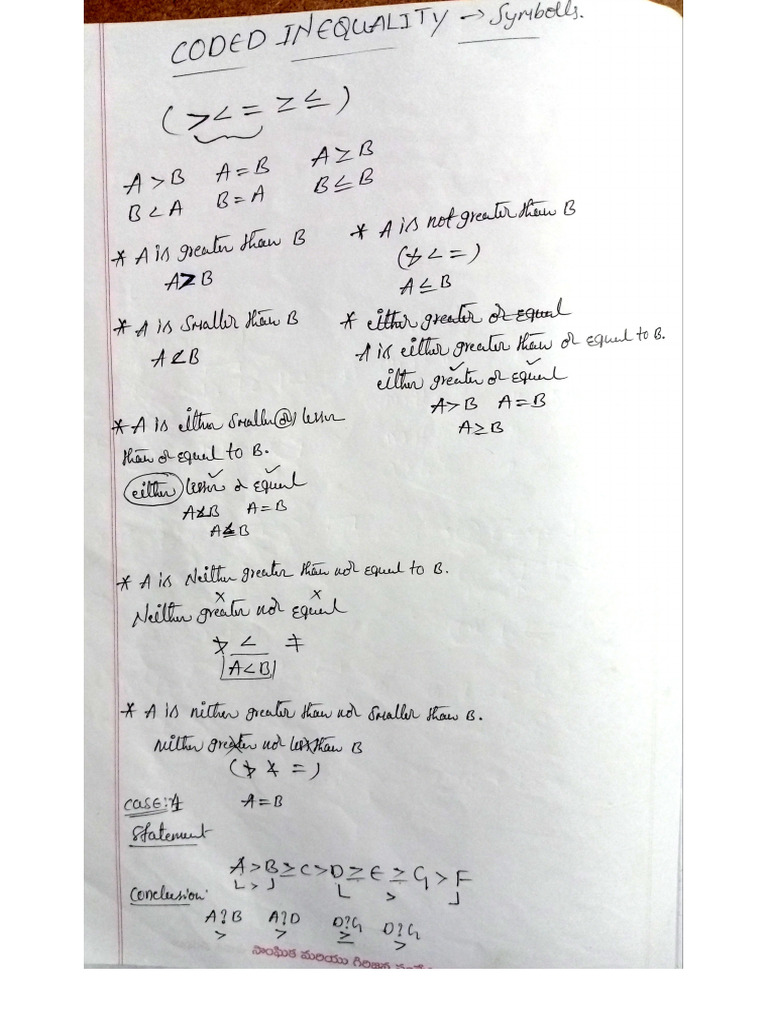 CODED INEQUALITY → Symbolls.
( > < = ≥ ≤ )
A > B A = B A ≥ B
B < A B = A B ≤ B
* A is greater than B
A > B
* A is not greater than B
(≯ < =)
A ≤ B
* A is Smaller than B
A < B
* either greater or equal
A is either greater than or equal to B.
either greater or equal
A > B A = B
A ≥ B
* A is either Smaller (or) lesser
than or equal to B.
either lesser or equal
A < B A = B
A ≤ B
* A is Neither greater than nor equal to B.
Neither greater nor equal
≯ < ≠
A < B
* A is nither greater than nor Smaller than B.
nither greater nor less than B
(≯ ≮ =)
A = B
CASE: 1
Statement
A > B ≥ C > D ≥ E ≥ G > F
>
>
Conclusion:
A ? B A ? D D ? G D ? G
> > ≥ >
సాంఘిక మరియు గిరిజన